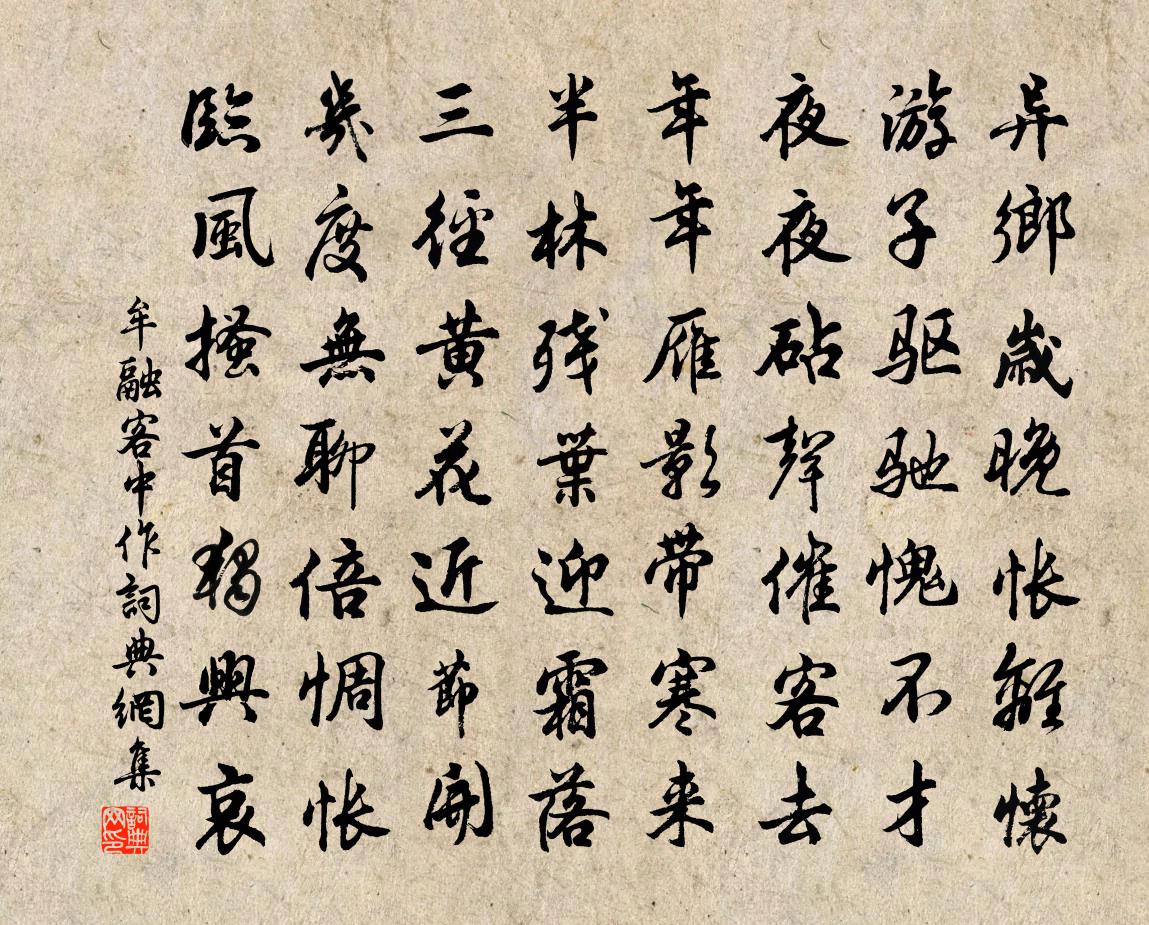 异鄉歲晚怅離懷
游子驱驰愧不才
夜夜砧聲催客去
年年雁影带寒来
半林残葉迎霜落
三徑黄花近節開
幾度無聊倍惆怅
臨風搔首獨興哀
牟融客中作詞典網集
詞典网印